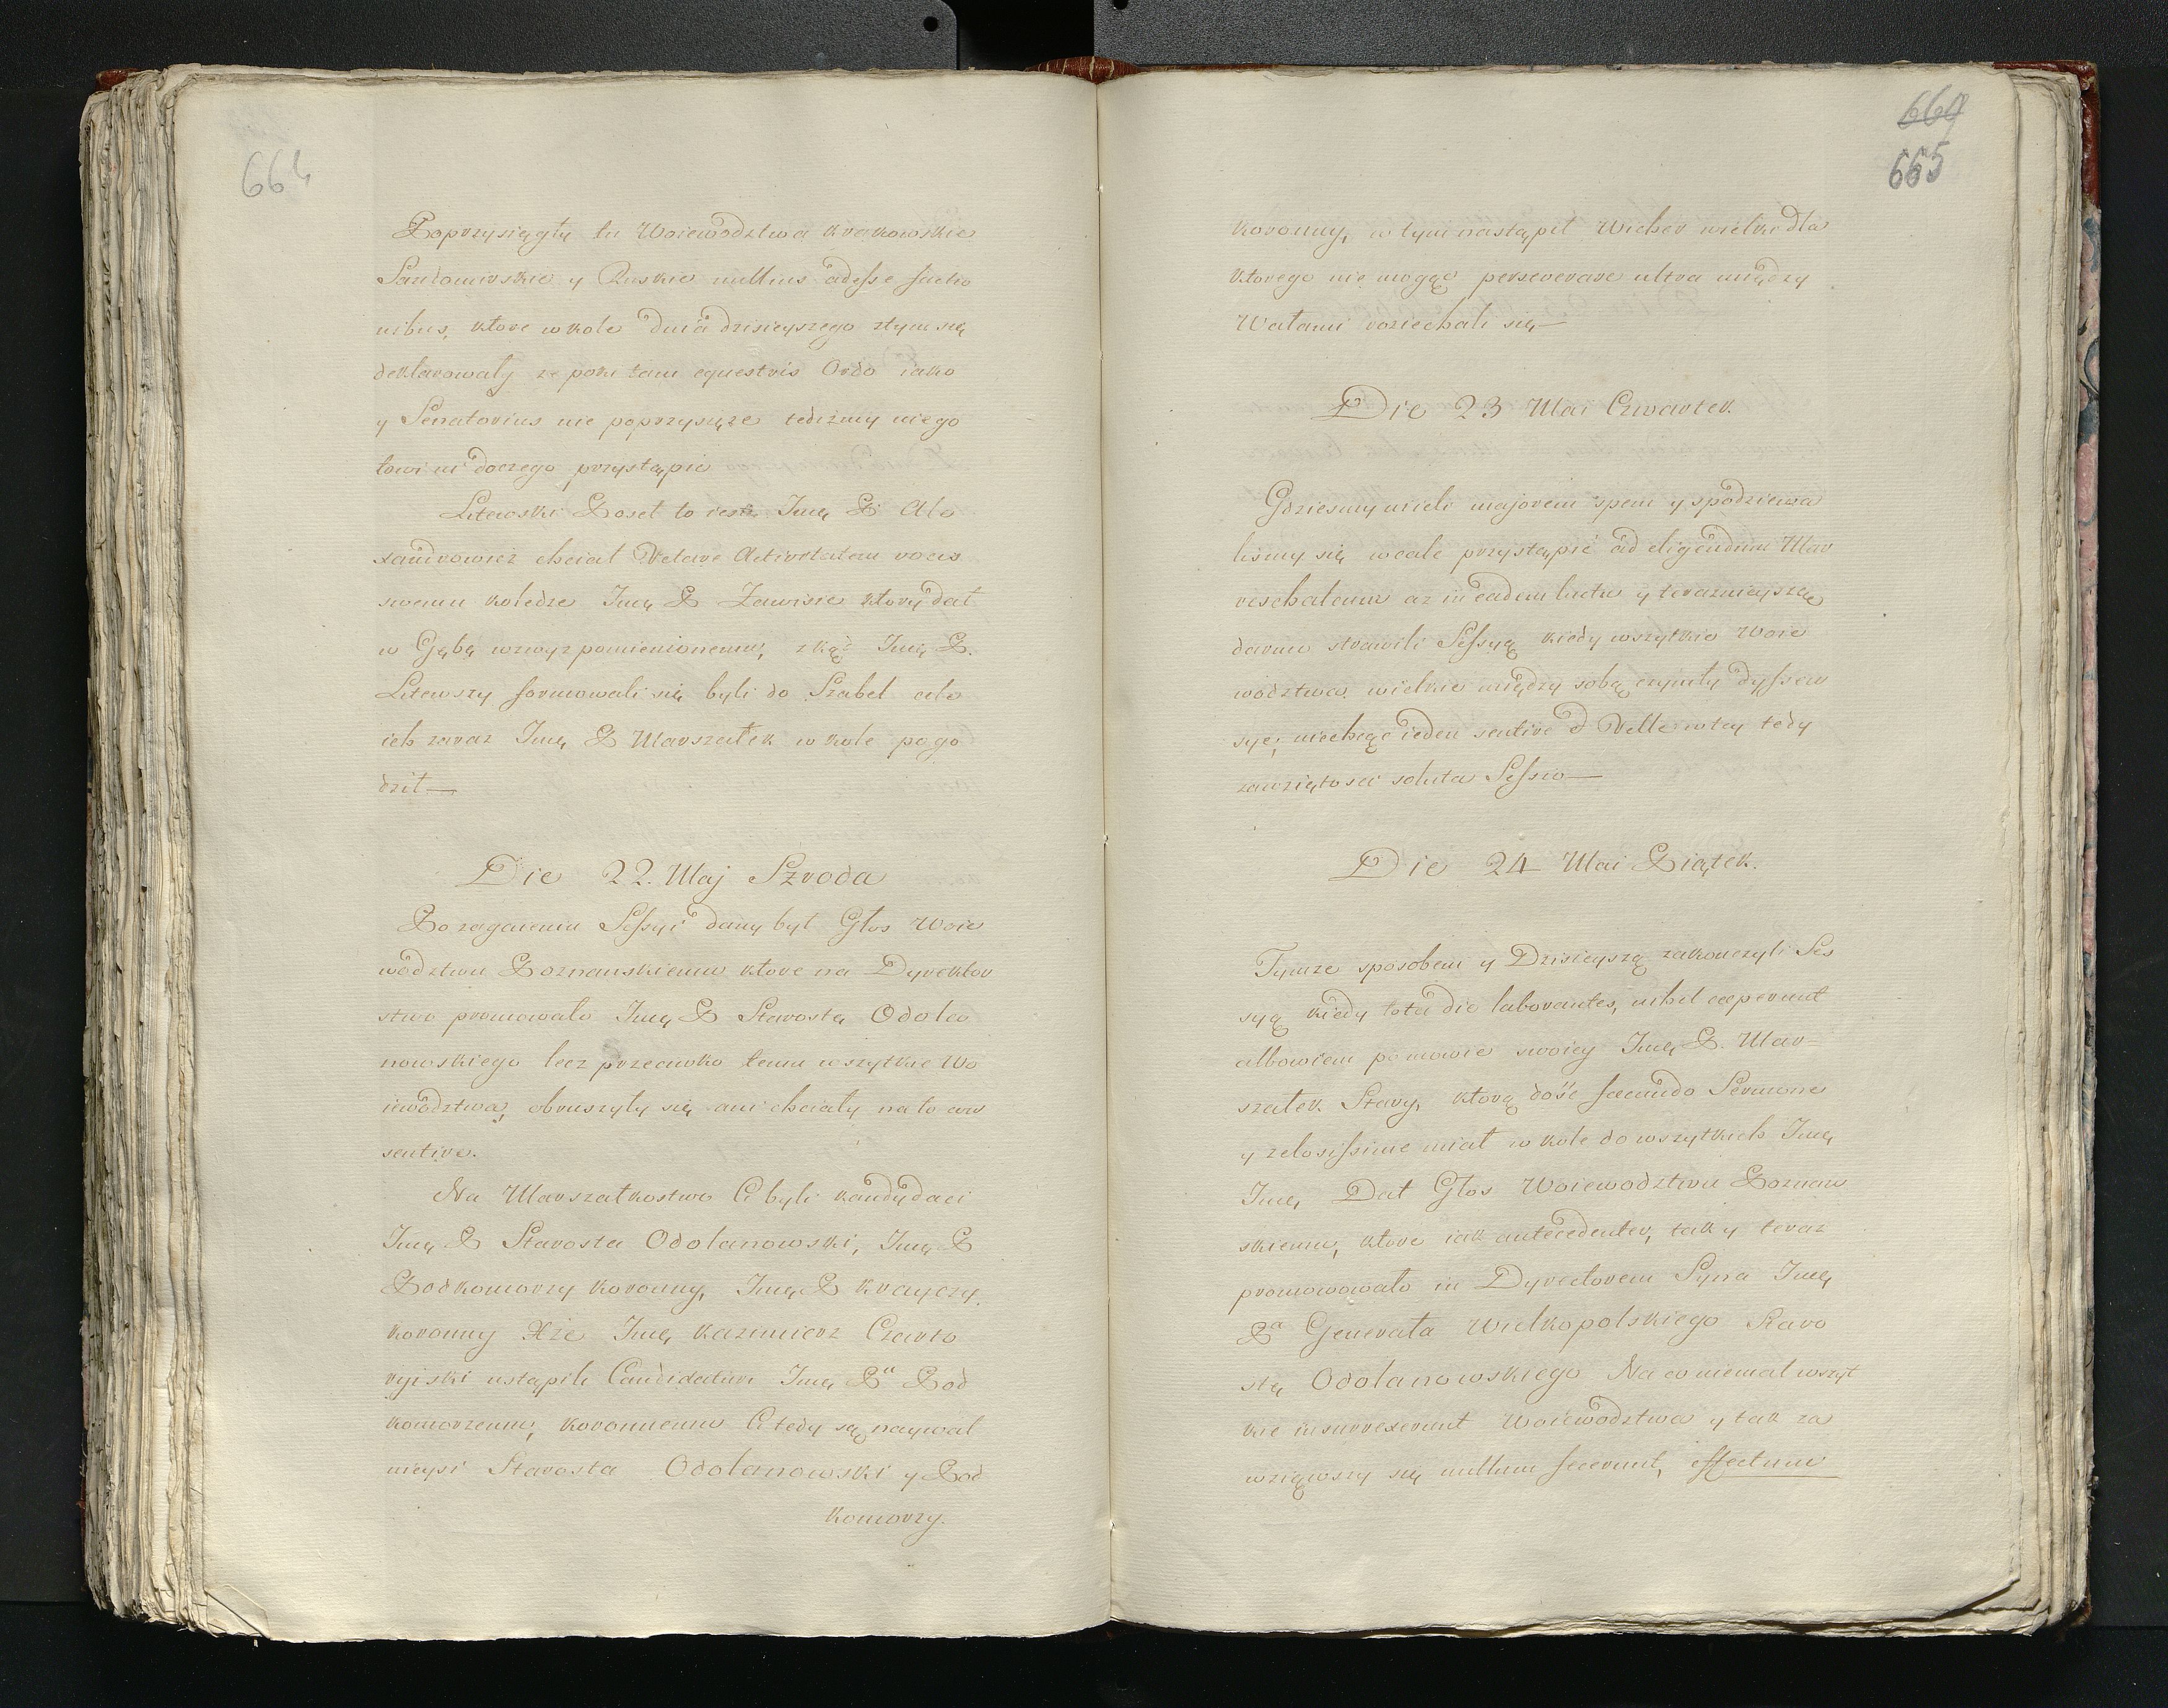 664
Poprzysięgły tu Woiewodztwa krakowskie
Sandomirskie y Ruskie nullius adesse factio
nibus, ktore w kole dnia dzisieyszego ztym się
deklarowały ze poki tam equestris Ordo iako
y Senatorius nie poprzysięze tedizmy niego
towi ni doczego przystąpic
Litewski Poseł to iest Jmę P. Ale
xandrowicz chciał Vetare Activitatem vocis
swemu koledze Jmę P. Zawisie ktory dał
w Gębę wzwyz pomienionemu, z kąz Jmę P.
Litewszy formowali się byli do Szabel ale
ich zaraz Jmę P Marszałek w kole pogo
dził—
Die 22. Maj Szroda
Po zagaieniu Sessyi dany był Głos Woie
wodztwu Poznanskiemu ktore na Dyrektor
stwo promowało Jmę P Starostę Odola
nowskiego lecz przeciwko temu wszytkie Wo
iewodztwa, obruszyły się ani chciały na to con
sentire.
Na Marszałkostwo Ci byli kandydaci
Jmę P Starosta Odolanowski, Jmę P
Podkomorzy koronny, Jmę P krayczy
koronny Xże Jmę kazimierz Czarto
ryiski ustąpili Candidaturi Jmę Pu Pod
komorzemu, koronnemu Ci tedy są naywal
nieysi Starosta Odolanowski y Pod
komorzy.
669
665
koronny, w tym nastąpił Wicher wielki dla
ktorego nie mogąc perseverare ultra między
Wałami roziechali się—
Die 23 Mai Czwartek.
Gdziesmy mieli majorem spem y spodziewa
lismy się wcale przystąpić ad eligendum Mar
reschalcum az in eadem luctu y teraznieyszą
darmo strawili Sessyą kiedy wszytkie Woie
wodztwa wielkie między sobą czyniły dyssen
sye, niechcąc ieden sentire & Velle w tey tedy
zawziętosci soluta Sessio—
Die 24 Mai Piątek.
Tymze sposobem y Dzisieyszą zakonczyli Ses
syą kiedy tota die laborantes, nihil ceperunt
albowiem po mowie swoiey Jmę P. Mar-
szałek Stary, ktorą dość facundo Sermone
y zelosissime miał w kole do wszytkich Jmę
Jmę, Dał Głos Woiewodztwu Poznan
skiemu, ktore iak antecedenter, tak y teraz
promowowało in Dyrectorem Syna Jmę
Pa Generała Wielkopolskiego Staro
stę Odolanowskiego Na co niemal wszyt
kie insurrexerunt Woiewodztwa y tak za
wziąwszy się nullum fecerunt, effectum